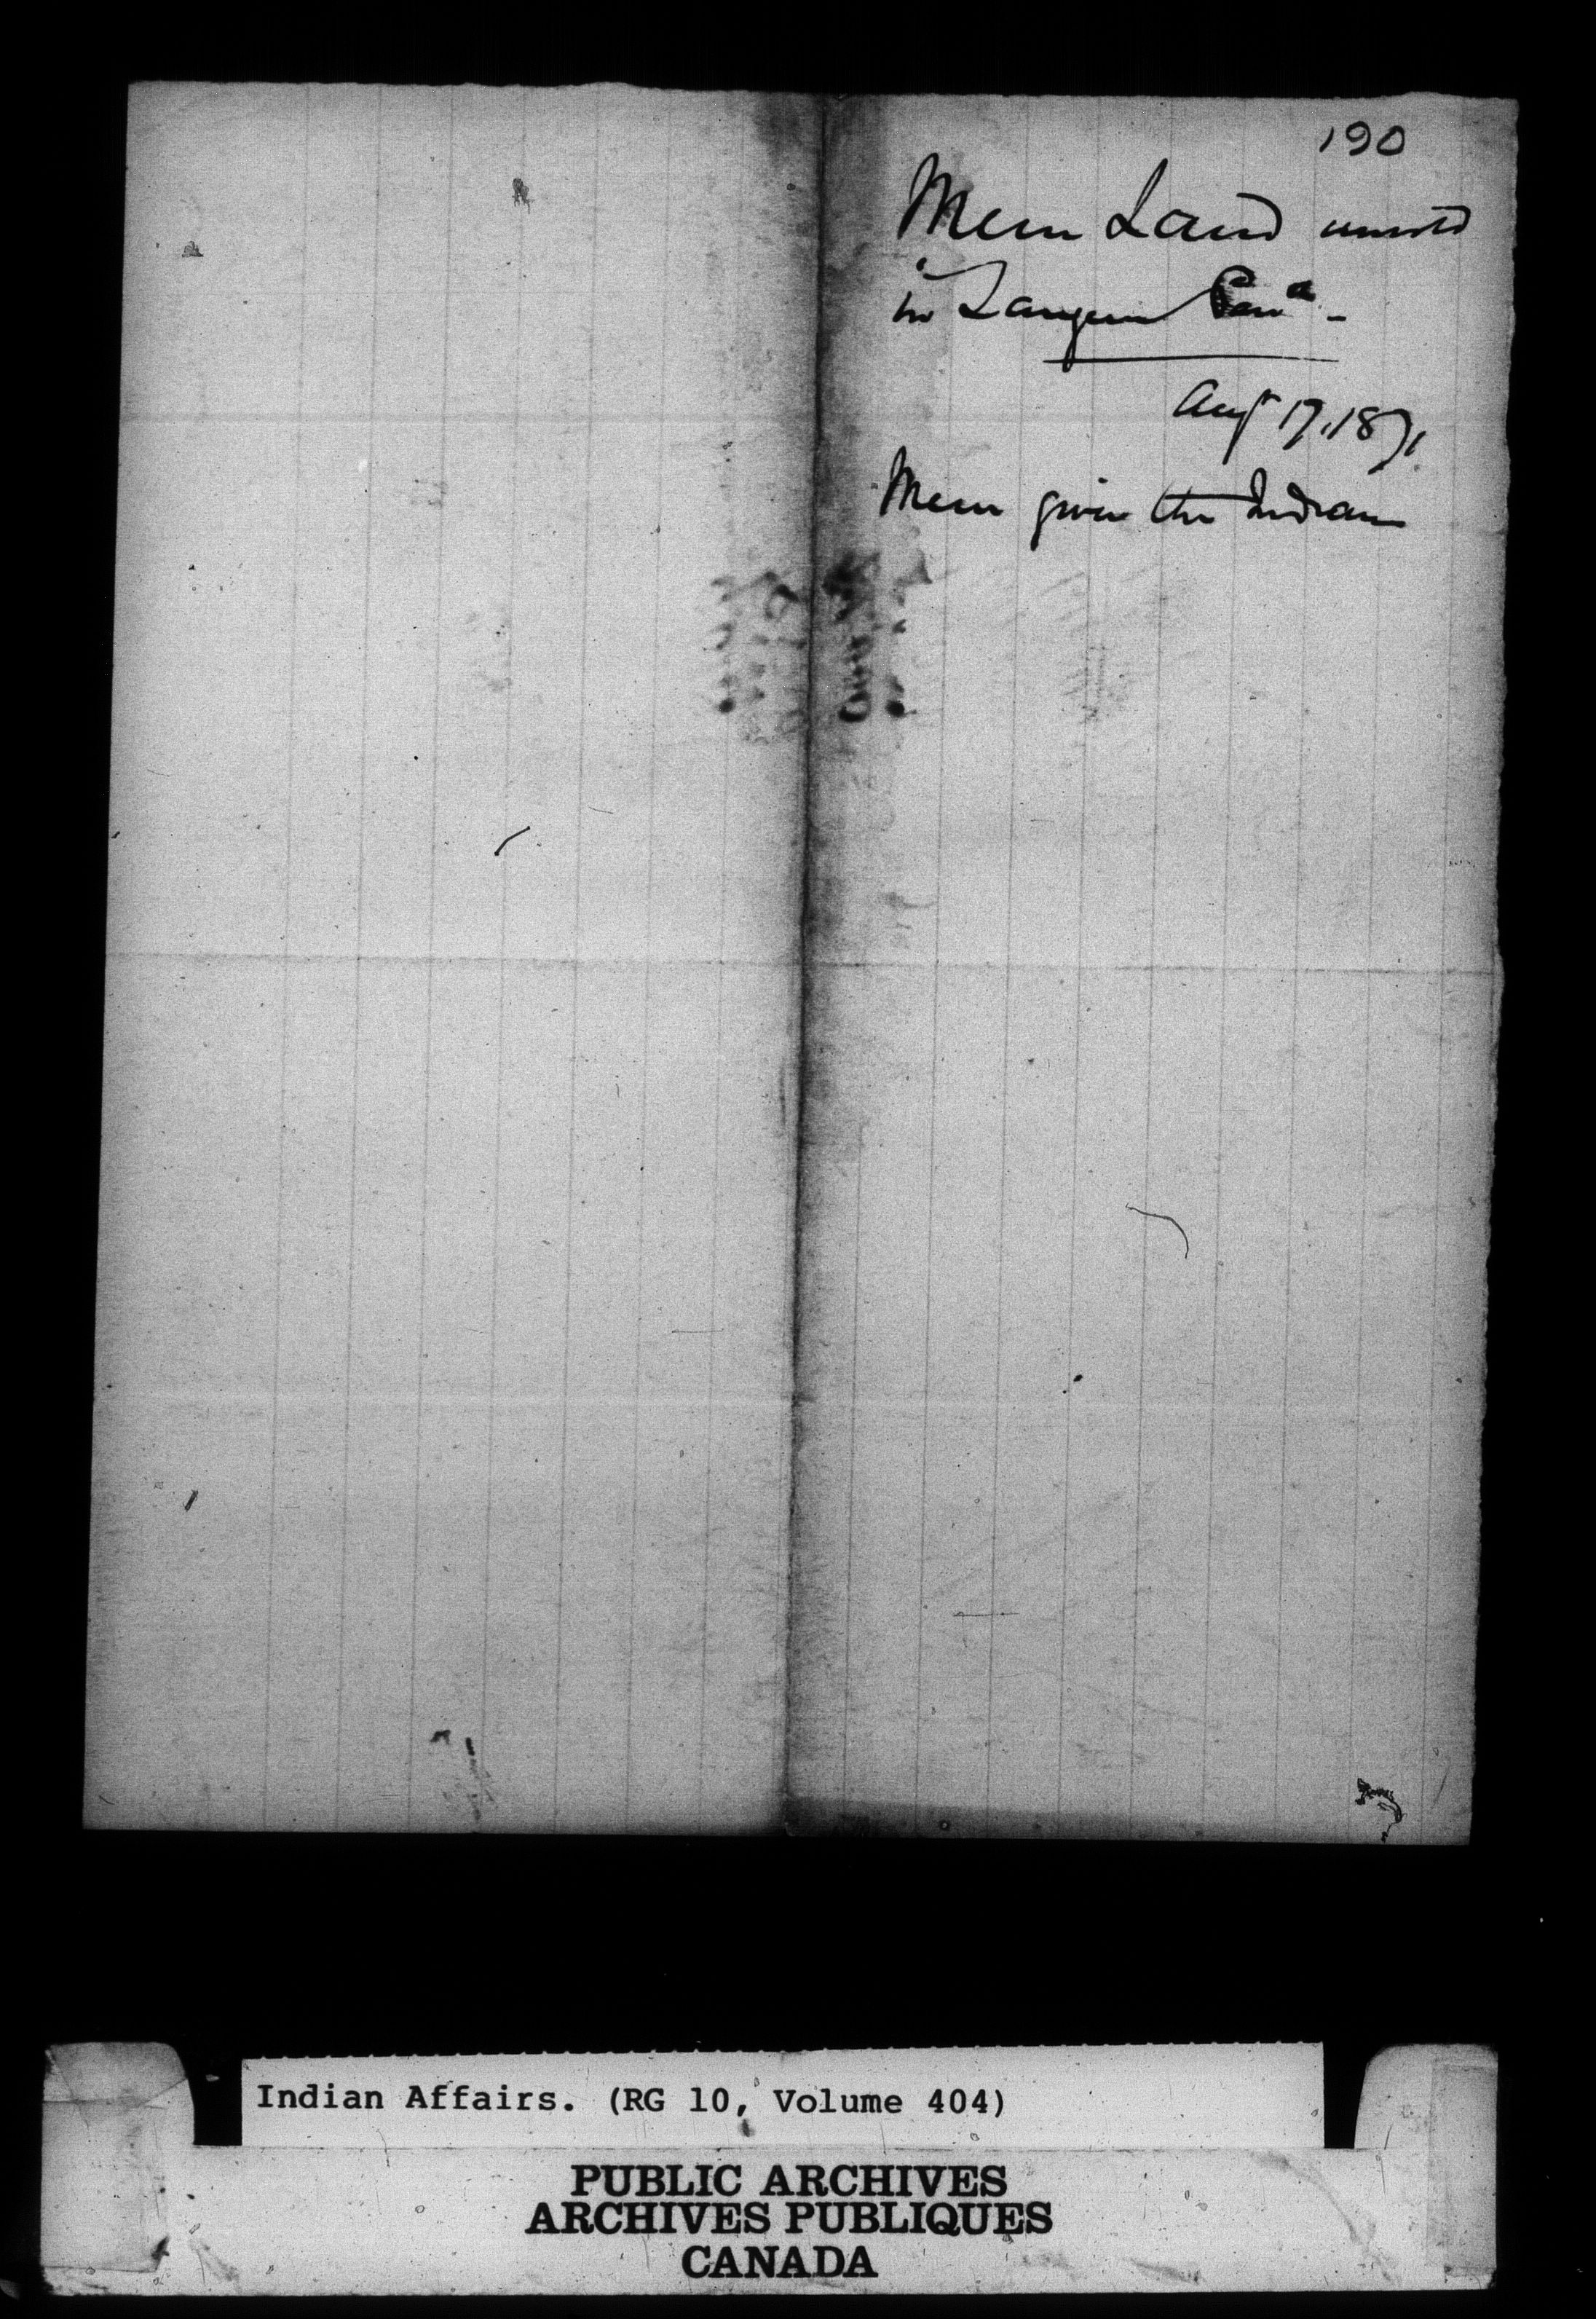 190
Mem Land unsold
in Sarnia
Augt 17, 1871
Mem given the Indians
Indian Affairs. (RG 10, Volume 404)
PUBLIC ARCHIVES
ARCHIVES PUBLIQUES
CANADA